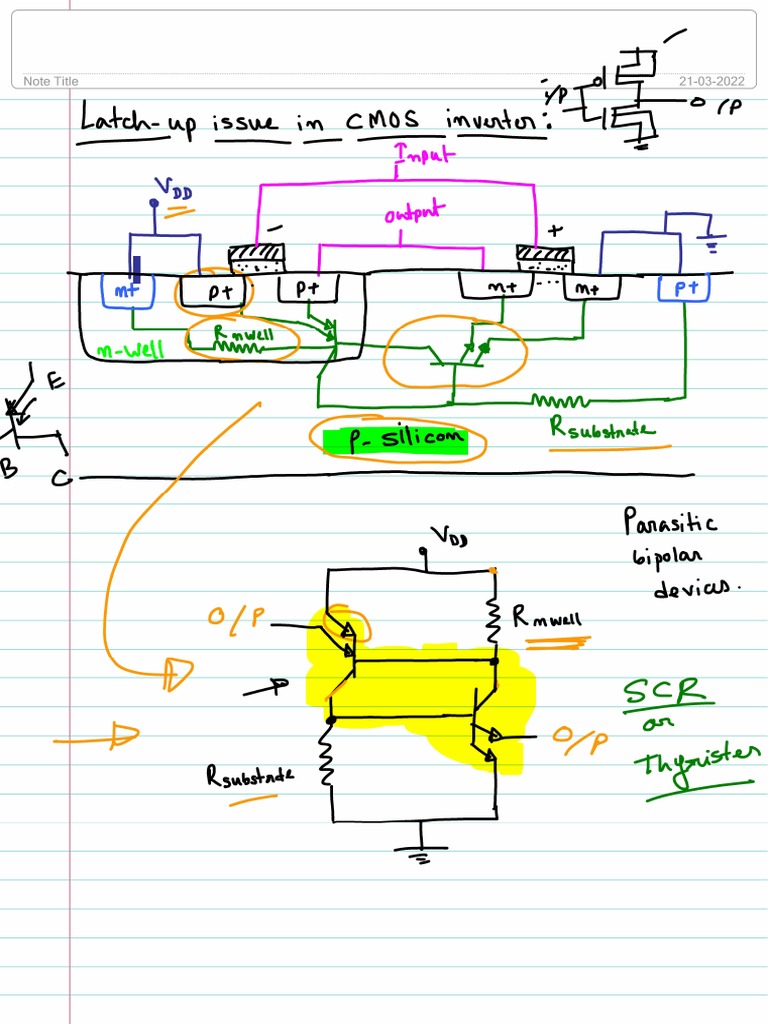 Note Title
21-03-2022
i/P
O/P
Latch-up issue in CMOS invertor:
Input
VDD
output
- +
n+ p+ p+ n+ n+ p+
Rnwell
n-well
E
B
C
p-silicon
Rsubstrate
Parasitic
bipolar
devices.
VDD
O/P
Rnwell
SCR
or
Thyristor
O/P
Rsubstrate